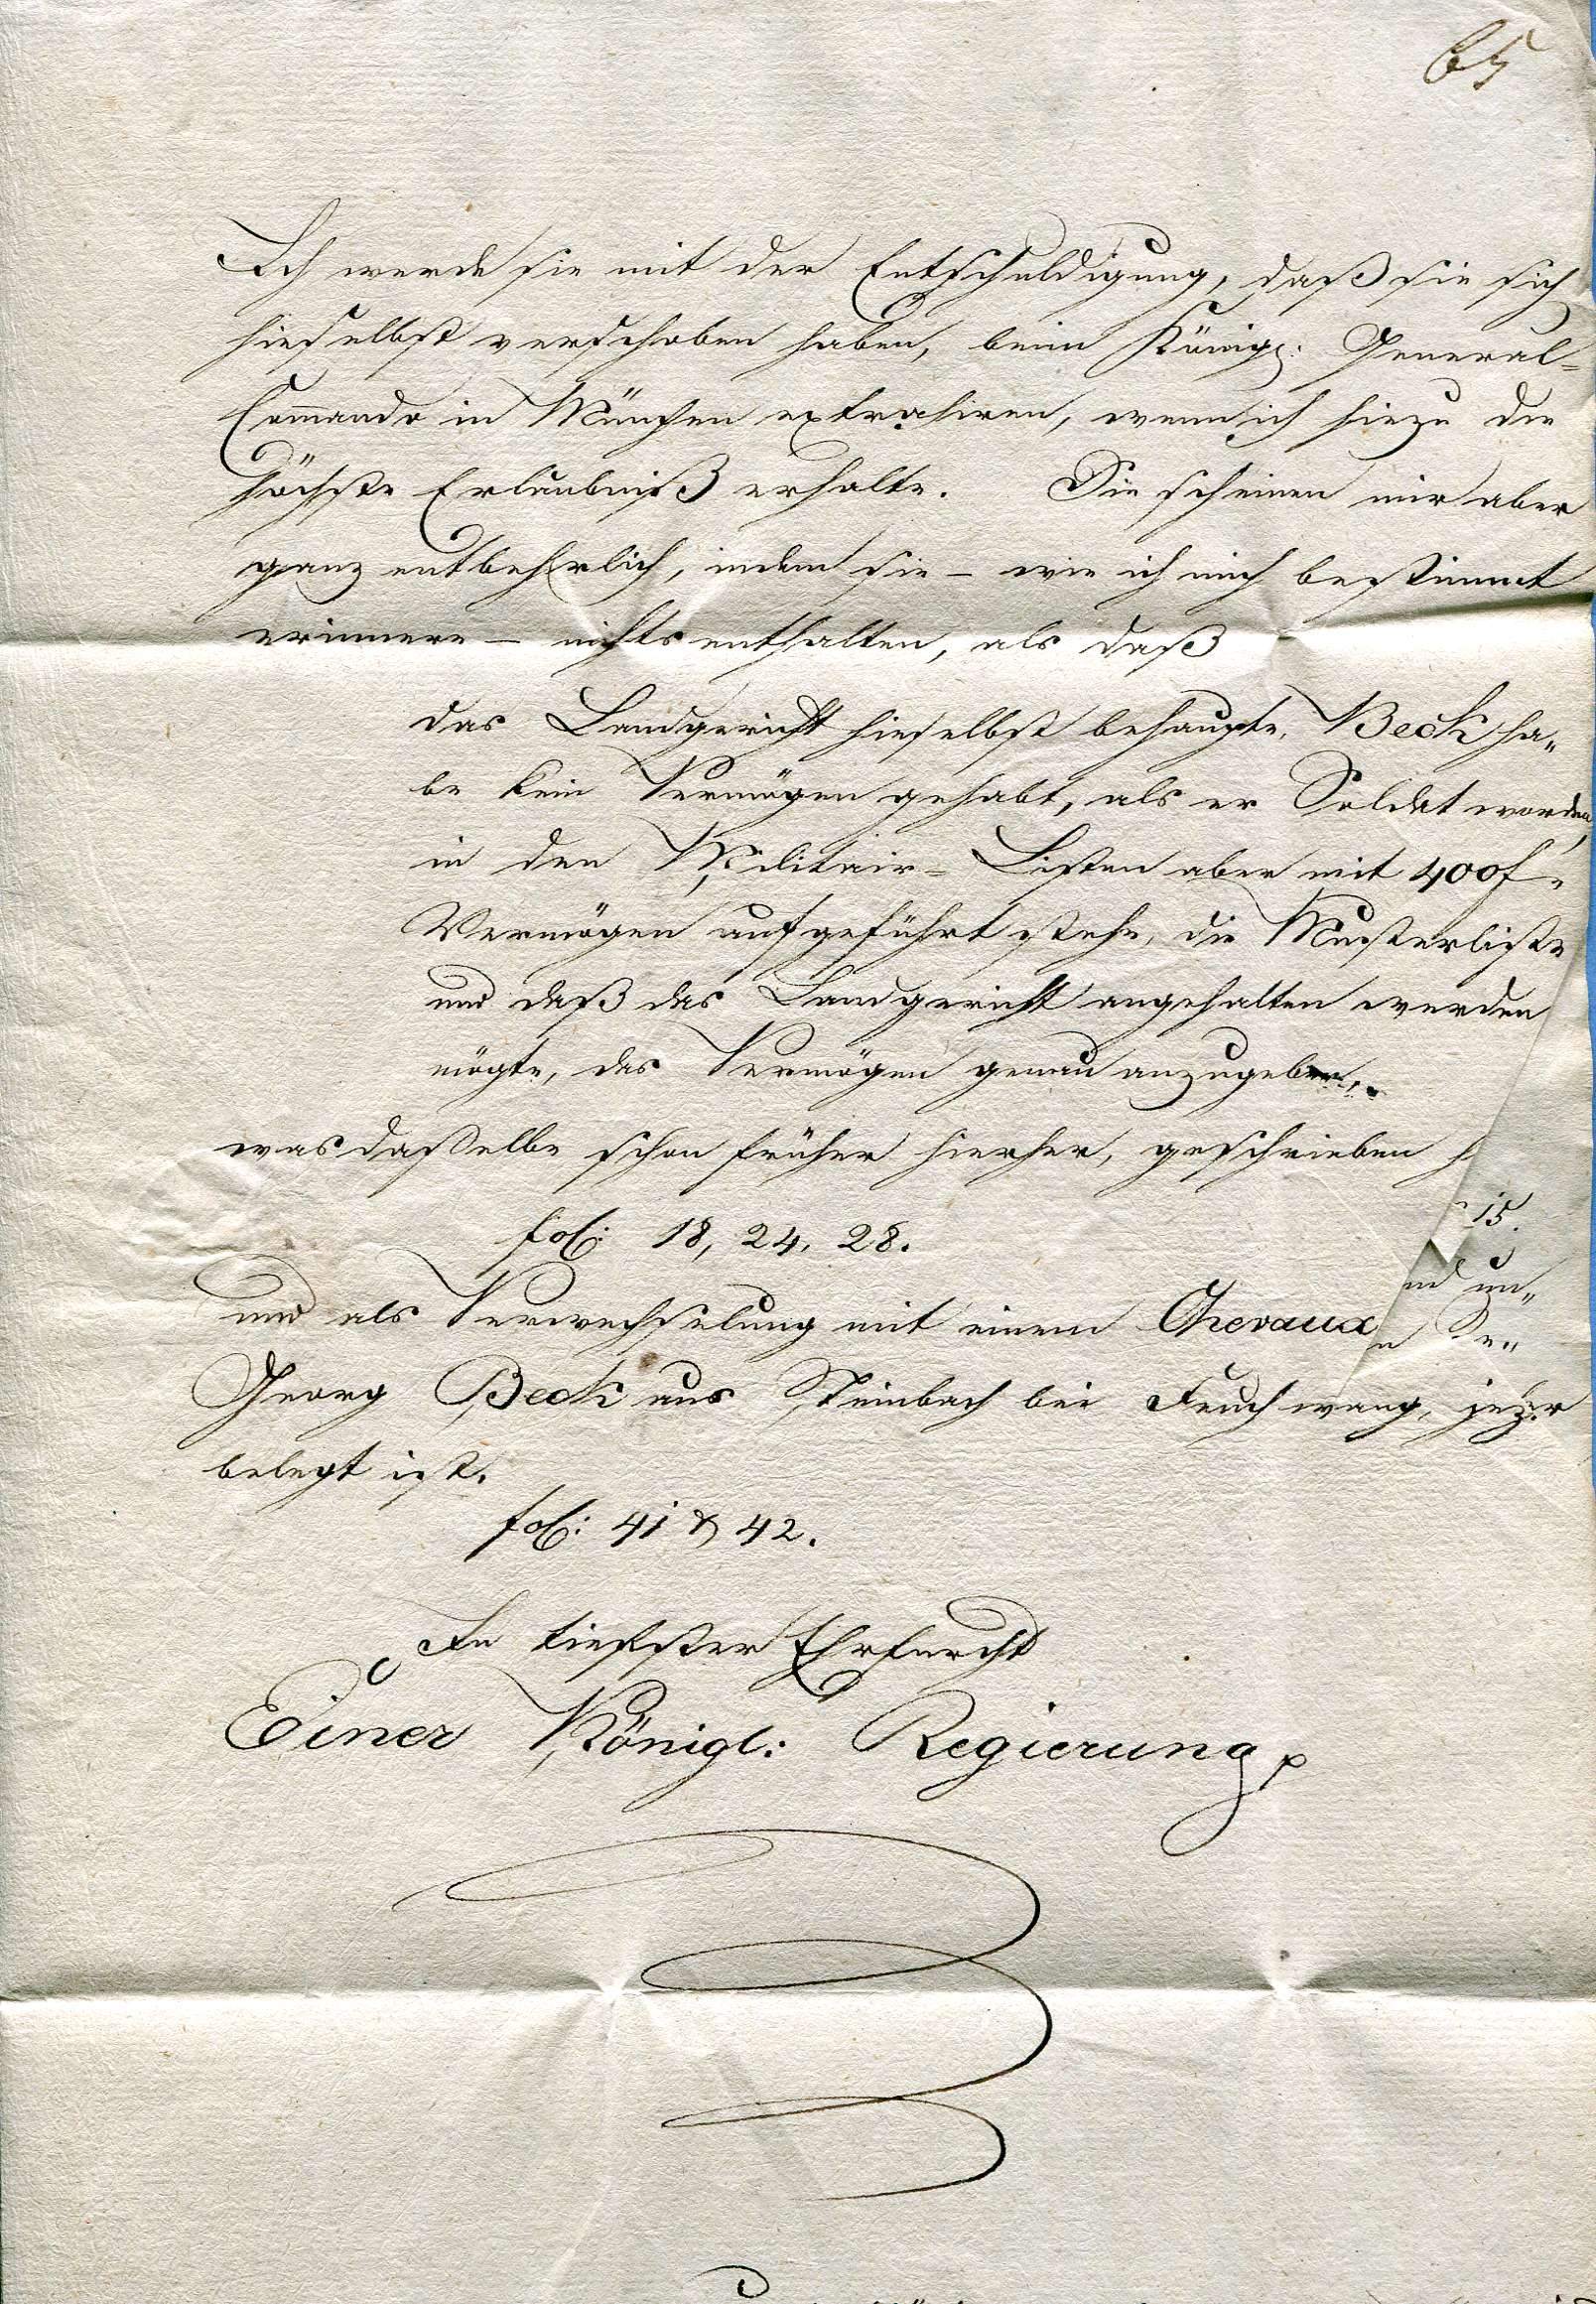 65
Ich werde sie mit der Entschuldigung, daß sie sich
hieselbst verschoben haben, beim Königl: General-
Commando in München extrahiren, wenn ich hiezu die
höchste Erlaubniß erhalte. Sie scheinen mir aber
ganz entbehrlich, indem sie - wie ich mich bestimmt
erinnere - nichts enthalten, als daß
das Landgericht hieselbst behaupte, Beck ha„
be kein Vermögen gehabt, als er Soldat worden,
in den Militair-Listen aber mit 400 f.
Vermögen aufgeführt stehe, die Musterliste
und daß das Landgericht angehalten werden
mögte, das Vermögen genau anzugeben,
was dasselbe schon früher hierher, geschrieben
fol: 18, 24, 28.
15.
und als Verwechselung mit einem Chevaux
un„
Georg Beck aus Steinbach bei Feuchwang,
belegt ist.
fol: 41 & 42.
In tiefster Ehrfurcht
Einer Königl: Regierung